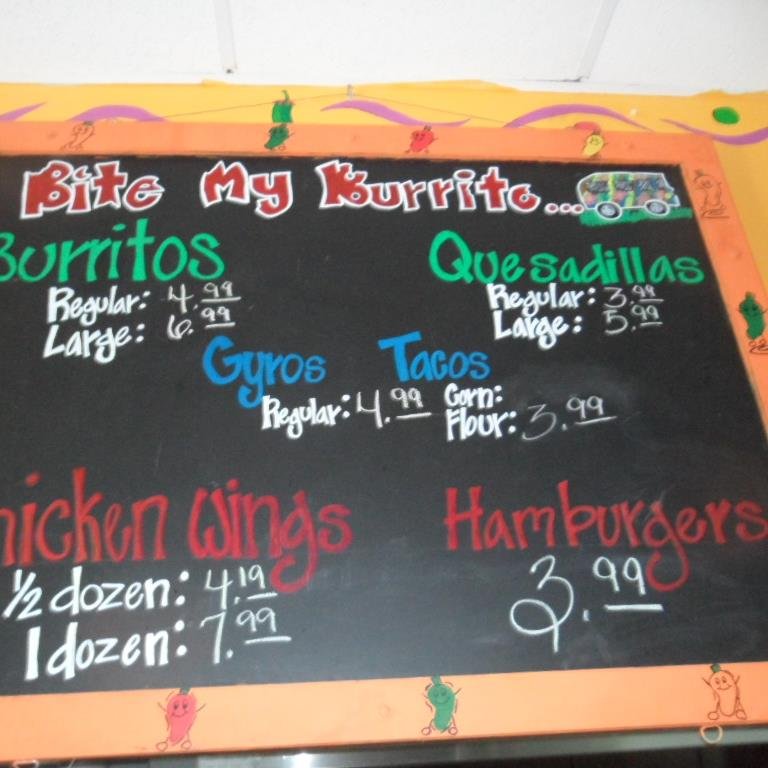 Bite My Burrito...
Burritos
Regular: 4.99
Large: 6.99
Quesadillas
Regular: 3.99
Large: 5.99
Gyros
Regular: 4.99
Tacos
Corn:
Flour: 3.99
hicken Wings
1/2 dozen: 4.19
1 dozen: 7.99
Hamburgers
3.99